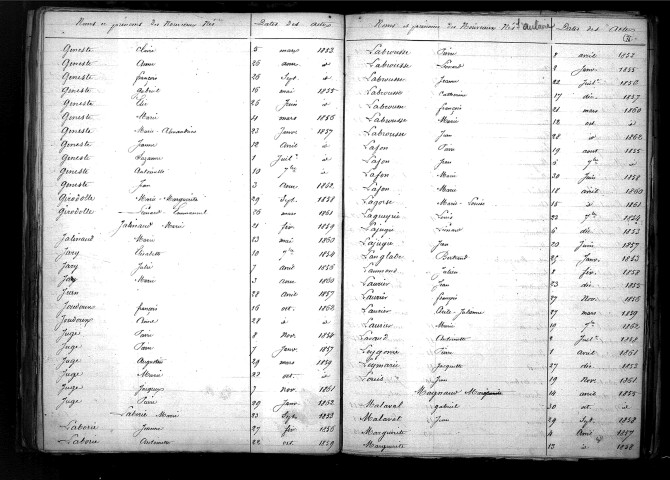 Noms et prénoms des Nouveaux Nés Dates des Actes
Geneste Claire 5 mars 1853
Geneste Anne 26 id
Geneste françois 26 Sept. id
Geneste Gabriel 16 mai 1855
Geneste 26 Juin id
Geneste Marie 4 mars 1856
Geneste Marie 23 Janv. 1857
Geneste Jeanne 12 Avril id
Geneste Suzanne 1 Juil. id
Geneste Antoinette 10 7bre id
Geneste Jean 3 1862
Girodolle Marie Marguerite 29 Sept. 1858
Girodolle Léonard Emmanuel 26 mars 1861
Jalinaud Marie 21 fév. 1859
Jalinaud Marie 23 mai 1860
Jary Elisabeth 10 1854
Jary Julie 7 avril 1856
Jary Marie 3 1860
Jean 28 Août 1857
Joudoux françois 16 oct. 1862
Joudoux 28 id
Juge Pierre 8 Nov. 1854
Juge Pierre 7 Janv. 1857
Juge Augustin 29 mars 1859
Juge Marie 22 oct. id
Juge Jacques 7 nov. 1861
Juge Pierre 29 Janv. 1862
Laborie Marie 23 Sept. 1853
Laborie Jeanne 27 fév. 1856
Laborie Antoinette 22 oct. 1859
Noms et prénoms des Nouveaux Nés Dates des Actes
Labrousse Pierre 8 avril 1852
Labrousse 2 Janv. 1855
Labrousse Jeanne 22 Juil. 1856
Labrousse Catherine 17 déc. 1857
Labrousse françois 21 mars 1860
Labrousse Marie 12 oct. id
Labrousse Jean 28 id 1862
Lafon Pierre 19 aout 1855
Lafon Jean 5 7bre id
Lafon Marie 30 Juin 1858
Lafon Marie 18 avril 1860
Lagorse Marie Louise 15 id 1861
Lagueyrie Louis 22 7bre 1854
Lajugie Léonard 6 déc. 1853
Lajugie Jean 20 Juin 1857
Langlade Bertrand 25 Janv. 1853
Julien 2 fév. 1858
Laurier Jean 23 déc. 1855
Laurier françois 27 Nov. 1856
Laurier 27 mars 1859
Laurier Marie 19 7bre 1862
Antoinette 2 Juil. 1858
Leygonie Pierre 1 avril 1861
Leymarie Marguerite 27 déc. 1852
Louis Jean 19 Nov. 1861
Maignaud Marguerite 14 avril 1855
Malavel gabriel 30 oct. id
Malavel Jean 29 Sept. 1858
Marguerite 4 Avril 1857
Marguerite 13 id 1858